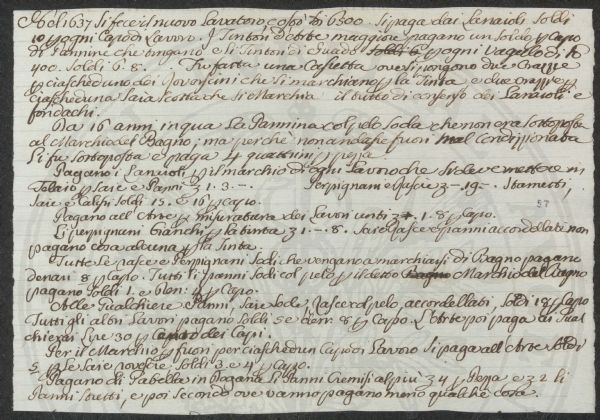 Nel 1637 si fece il nuovo Lavatoro costò 6500. Si paga dai Lanaioli Soldi
10 p ogni Capo di Lavoro. I Tintori d'Arte maggiore pagano un Soldo p Capo
di Pannine che tingano e Si Tintori di Guado Soldi 6 p ogni Vagello di
400. Soldi 6. 8. Fu fatta una Casietta ove si pongono due Crazze
p ciascheduno dei che si marchiano p la Tinta e due crazze p
ciascheduna Saia Scotta che si Marchia il tutto di consenso dei Lanaioli e
fondachi.
Da 16 anni in qua La Pannina col pelo Soda che non era Sottoposta
al Marchio del Bagno, ma perchè non andasse fuori mal Condizionata
Si fu Sottoposta e paga 4 quattrini p pezza
Pagano i Lanaioli p il marchio di ogni Lavoro che si deve mettere in
Telaio p Saie e Panni 1. 3. -. Perpignani e rasce - 19. -. Stametti,
Saie e Calisi Soldi 15. e 16 p capo.
Pagano all'Arte p misuratura dei Lavori unti 1. 8 p Capo.
Li perpignani bianchi p la tinta 1. -. 8. Saie rasce e panni accordellati non
pagano cosa alcuna p la Tinta.
Tutte Le rasce e Perpignani Sodi che vengano a marchiarsi di Bagno pagano
denari 8 p Capo. Tutti i panni Sodi col pelo p il detto Bagno Marchio del Bagno
pagano Soldi 1. e 4 p Capo.
Alle Gualchiere Panni, Saie Sode, Rasce col pelo, accordellati, Soldi 18 p Capo
Tutti gli altri Lavori pagano Soldi 5 e 8 p Capo. L'Arte poi paga ai Gual
chierai Lire 30 p Cento dei Capi.
Per il Marchio p fuori per ciaschedun Capo di Lavoro Si paga all'Arte Soldi
5 p Le Saie rovescie Soldi 3. e 4 p Capo.
Pagano di Gabella in Dogana Si Panni Cremisi al più 4 p Pezza e 2 li
Panni Stretti, e poi Secondo ove vanno pagano meno qualche cosa.
57